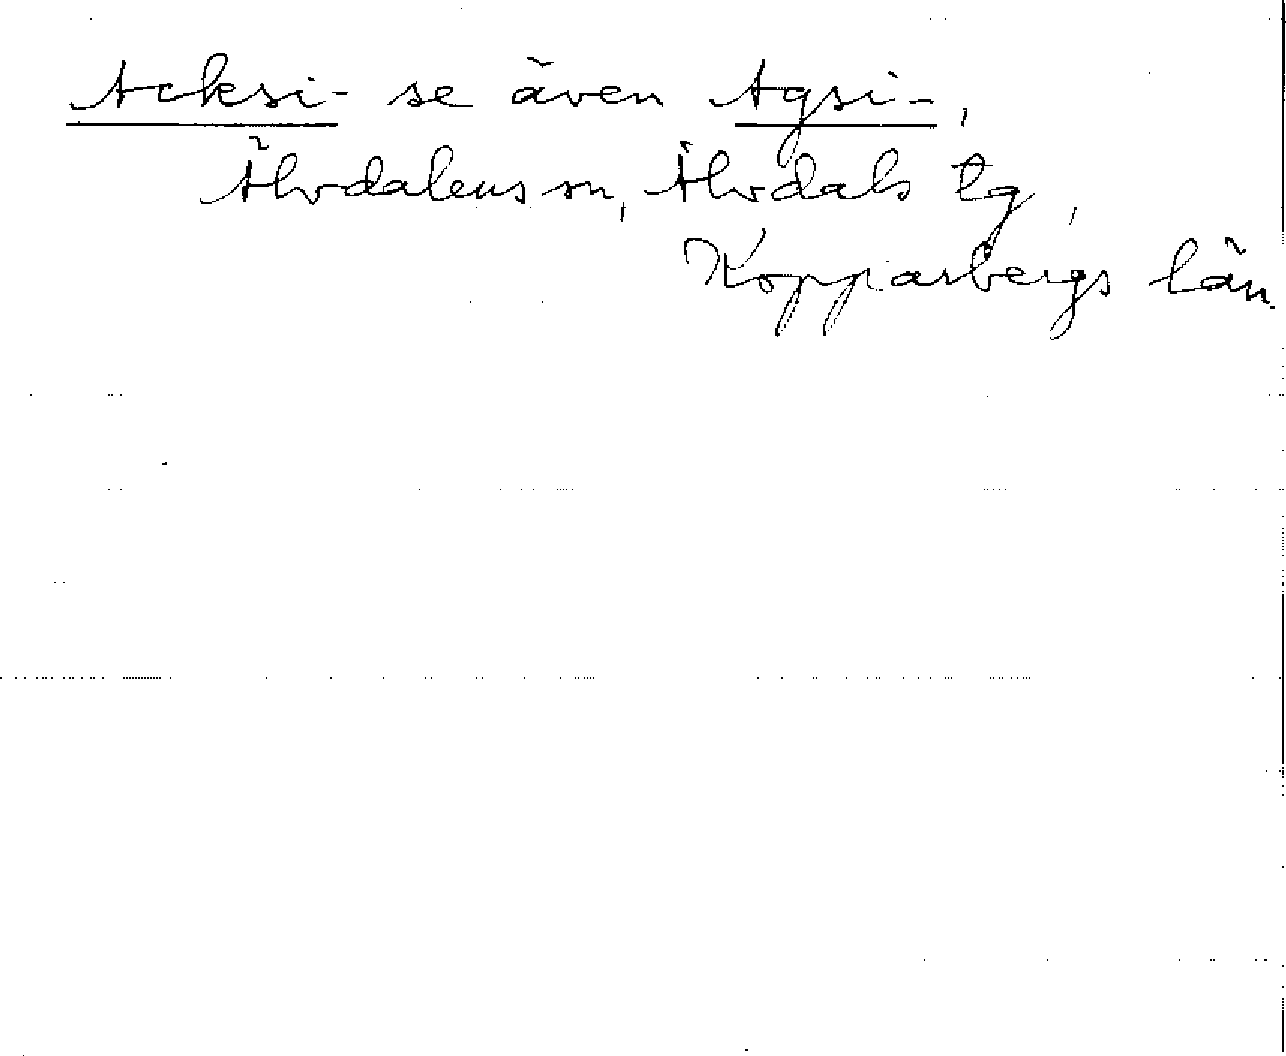 Acksi- se även Agsi-,
Älvdalens sn, Älvdals tg,
Kopparbergs län